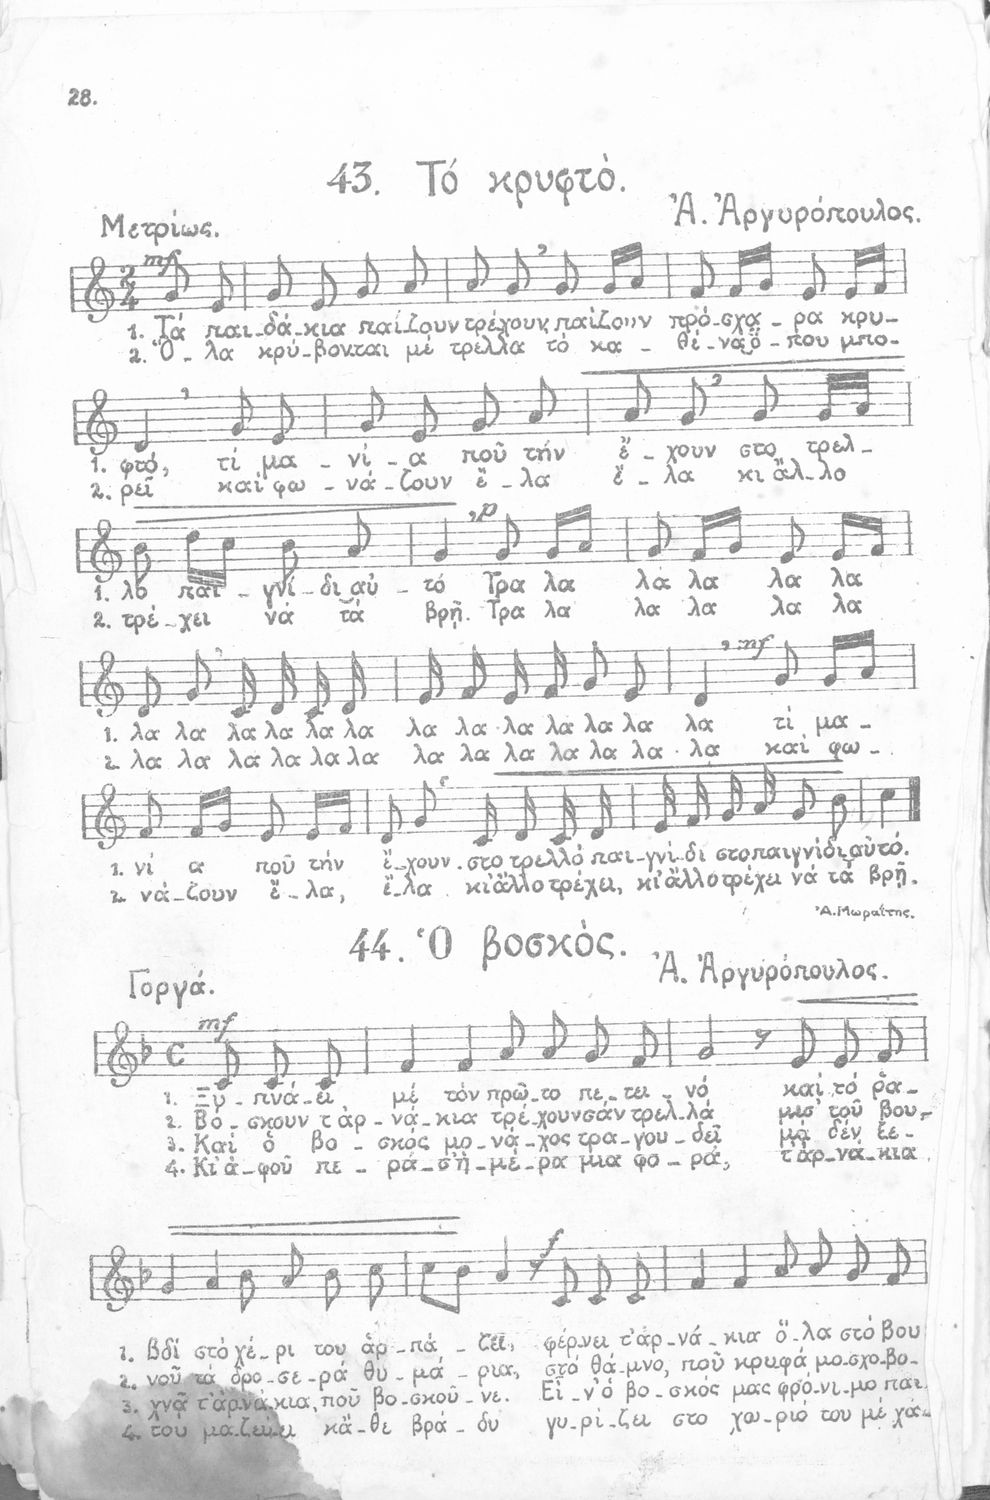 28.
43. Τό κρυφτὸ.
Μετρίως.
Ἀ. Ἀργυρόπουλος.
mf
1. Τά παι-δά-κια παίζουν τρέχουν, παίζουν πρό-σχα-ρα κρυ-
2. Ὅ-λα κρύ-βονται μέ τρέλλα τό κα-θέ-να ὅ-που μπο-
1. φτό, τί μα-νί-α ποῦ τήν ἔ-χουν στο τρελ-
2. ρεῖ καί φω-νά-ζουν ἔ-λα ἔ-λα κι ἄλ-λο
p
1. λό παι-γνί-δι αὐ-τό Τρα λα λα λα λα λα
2. τρέ-χει νά τά βρῇ. Τρα λα λα λα λα λα
mf
1. λα λα λα λα λα λα λα λα λα λα λα λα λα τί μα-
2. λα λα λα λα λα λα λα λα λα λα λα λα λα καί φω-
1. νί α ποῦ τήν ἔ-χουν στο τρελλό παι-γνί-δι στο παιγνίδι αὐτό.
2. νά-ζουν ἔ-λα, ἔ-λα κι' ἄλλο τρέχει, κι' ἄλλο τρέχει νά τά βρῇ.
Ἀ. Μωραΐτης.
44. Ὁ βοσκὸς.
Γοργά.
Ἀ. Ἀργυρόπουλος.
mf
1. Ξυ-πνά-ει μέ τόν πρῶ-το πε-τει-νό καί τό ρα-
2. Βό-σκουν τ' ἀρ-νά-κια τρέ-χουν σάν τρελ-λά μεσ' τοῦ βου-
3. Καί ὁ βο-σκός μο-νά-χος τρα-γου-δεῖ μά δέν ξε-
4. Κι' ἀ-φοῦ πε-ρά-σ' ἡ-μέ-ρα μια φο-ρά, τ' ἀρ-νά-κια
f
1. βδί στό χέ-ρι του ἁρ-πά-ζει, φέρ-νει τ' ἀρ-νά-κια ὅ-λα στό βου
2. νοῦ τά δρο-σε-ρά θυ-μά-ρια, στό θά-μνο, ποῦ κρυφά μο-σχο-βο-
3. χνᾷ τ' ἀρ-νά-κια, ποῦ βο-σκοῦ-νε. Εἶ-ν' ὁ βο-σκός μας φρό-νι-μο παι
4. του μα-ζεύει κά-θε βρά-δυ γυ-ρί-ζει στο χω-ριό του μέ χα-